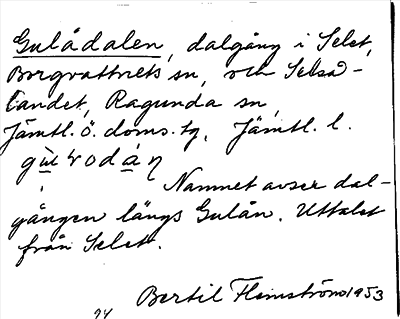 Gulådalen, dalgång i Selet,
Borgvattnets sn, och Selså-
landet, Ragunda sn,
Jämtl. ö. doms. tg, Jämtl. l.
Namnet avser dal-
gången längs Gulån. Uttalet
från Selet.
Bertil Flemström 1953